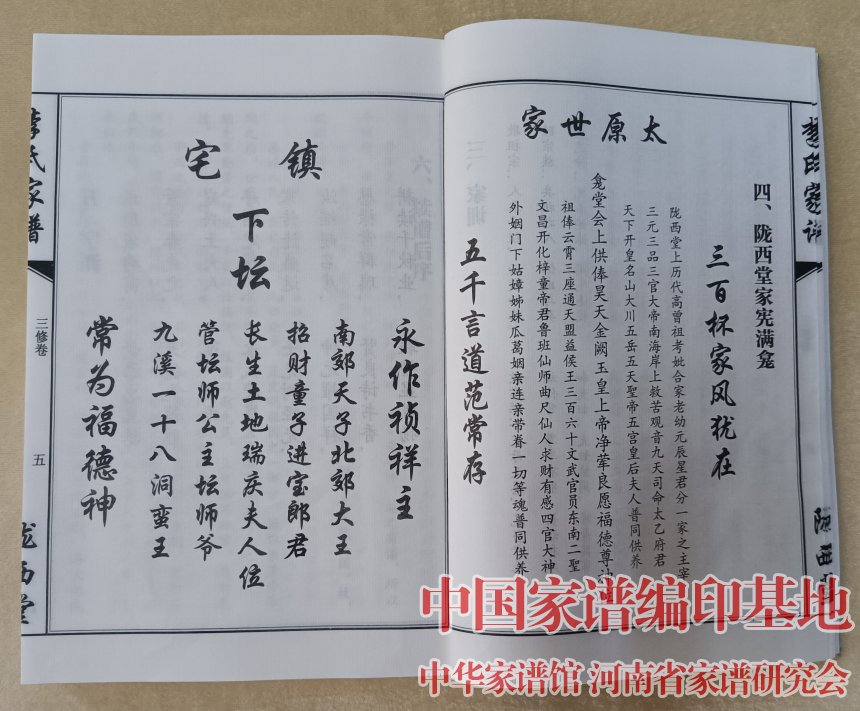 太原世家
四、陇西堂家宪满龛
三百杯家风犹在
陇西堂上历代高曾祖考妣合家老幼元辰星君分一家之主宰
三元三品三官大帝南海岸上救苦观音九天司命太乙府君
天下开皇名山大川五岳五天聖帝五宫皇后夫人普同供养
龛堂会上供俸昊天金阙玉皇上帝净荤良愿福德尊神
祖俸云霄三座通天盟益侯王三百六十文武官员东南二聖
文昌开化梓童帝君鲁班仙师曲尺仙人求财有感四官大神
外姻门下姑嫜姊妹瓜葛姻亲连亲带眷一切等魂普同供养
五千言道范常存
陇西
镇宅
下坛
永作祯祥主
南郊天子北郊大王
招财童子进宝郎君
长生土地瑞庆夫人位
管坛师公主坛师爷
九溪一十八洞蛮王
常为福德神
李氏家谱
三修卷
五
陇西堂
中国家谱编印基地
中华家谱馆 河南省家谱研究会